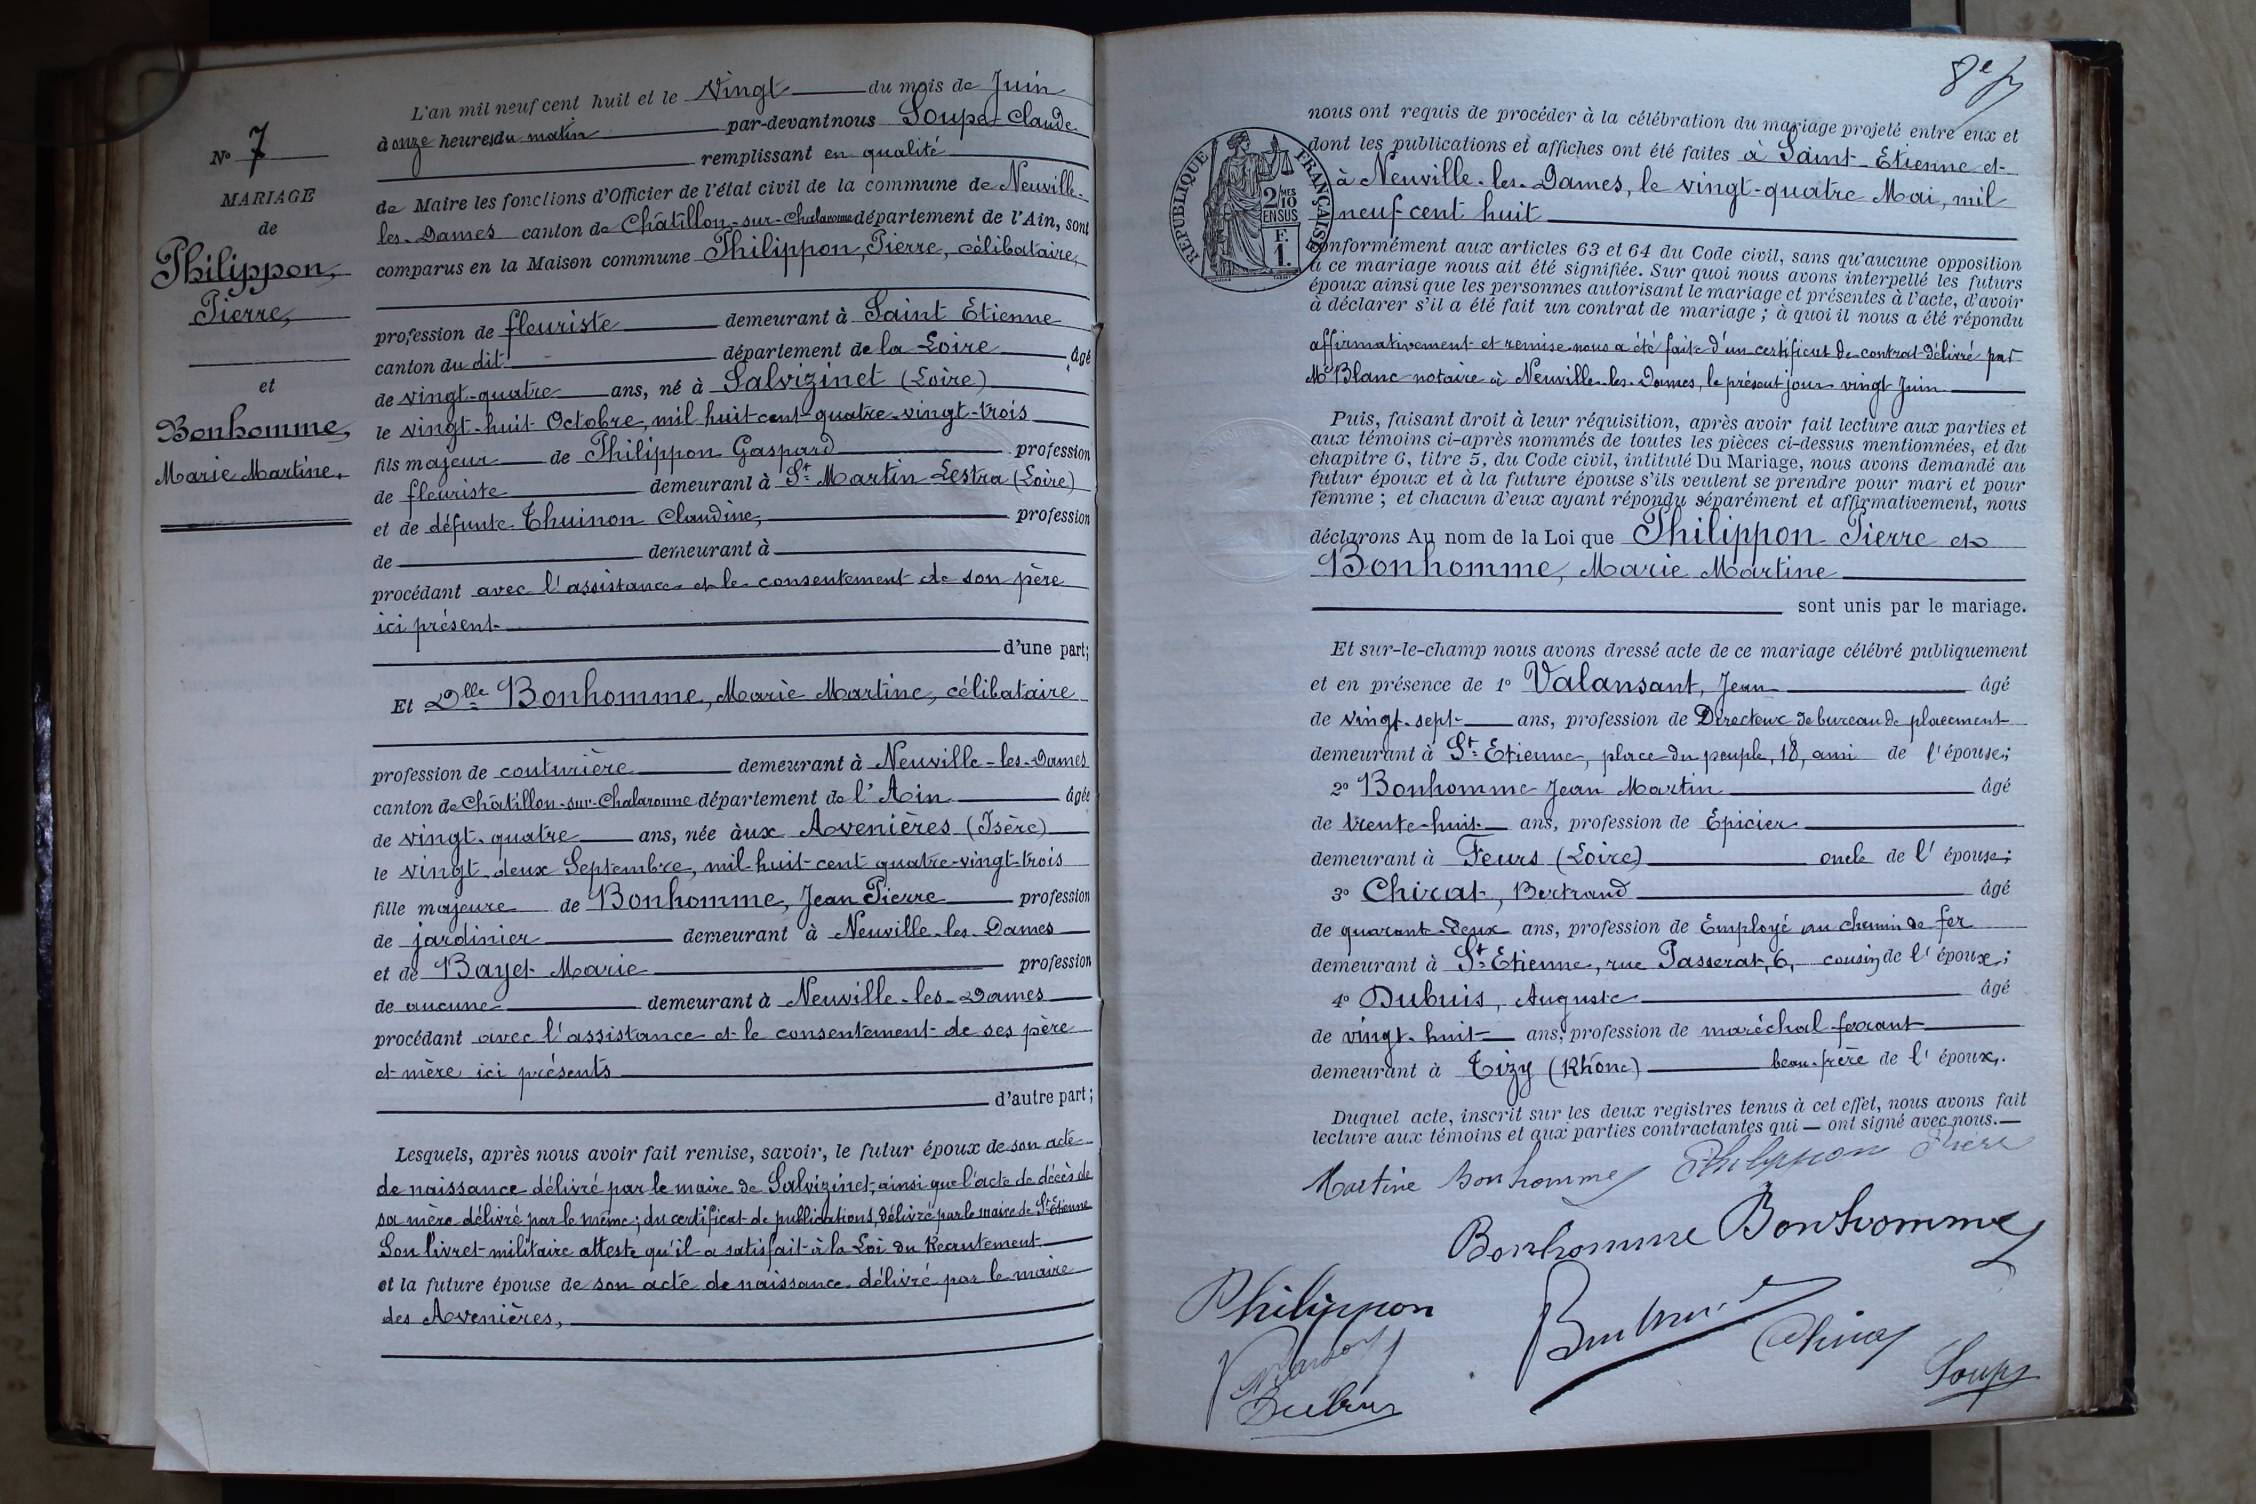 N° 7
MARIAGE
de
Philippon,
Pierre,
et
Bonhomme,
Marie Martine.
L'an mil neuf cent huit et le Vingt du mois de Juin
à onze heures du matin par-devant nous Soupe Claude
remplissant en qualité
de Maire les fonctions d'Officier de l'état civil de la commune de Neuville-
les-Dames canton de Châtillon-sur-Chalaronne département de l'Ain, sont
comparus en la Maison commune Philippon, Pierre, célibataire,
profession de fleuriste demeurant à Saint Etienne
canton du dit département de la Loire âgé
de vingt-quatre ans, né à Salvizinet (Loire)
le vingt-huit Octobre, mil huit-cent-quatre-vingt-trois
fils majeur de Philippon Gaspard profession
de fleuriste demeurant à St Martin Lestra (Loire)
et de défunte Thuinon Claudine, profession
de demeurant à
procédant avec l'assistance et le consentement de son père
ici présent
d'une part;
Et Dlle Bonhomme, Marie Martine, célibataire
profession de couturière demeurant à Neuville-les-Dames
canton de Châtillon-sur-Chalaronne département de l'Ain âgée
de vingt-quatre ans, née aux Avenières (Isère)
le vingt deux Septembre, mil huit-cent quatre-vingt-trois
fille majeure de Bonhomme, Jean Pierre profession
de jardinier demeurant à Neuville-les-Dames
et de Bayet Marie profession
de aucune demeurant à Neuville-les-Dames
procédant avec l'assistance et le consentement de ses père
et mère ici présents
d'autre part;
Lesquels, après nous avoir fait remise, savoir, le futur époux de son acte
de naissance délivré par le maire de Salvizinet, ainsi que l'acte de décès de
sa mère délivré par le même; du certificat de publications, délivré par le maire de St Etienne
Son livret militaire atteste qu'il a satisfait à la Loi du Recrutement
et la future épouse de son acte de naissance délivré par le maire
des Avenières,
8e
nous ont requis de procéder à la célébration du mariage projeté entre eux et
dont les publications et affiches ont été faites à Saint-Etienne et
à Neuville-les-Dames, le vingt-quatre Mai, mil
neuf cent huit
RÉPUBLIQUE FRANÇAISE
2/10 MES
EN SUS
F.
1.
conformément aux articles 63 et 64 du Code civil, sans qu'aucune opposition
à ce mariage nous ait été signifiée. Sur quoi nous avons interpellé les futurs
époux ainsi que les personnes autorisant le mariage et présentes à l'acte, d'avoir
à déclarer s'il a été fait un contrat de mariage ; à quoi il nous a été répondu
affirmativement et remise nous a été faite d'un certificat de contrat délivré par
Me Blanc notaire à Neuville-les-Dames, le présent jour vingt Juin
Puis, faisant droit à leur réquisition, après avoir fait lecture aux parties et
aux témoins ci-après nommés de toutes les pièces ci-dessus mentionnées, et du
chapitre 6, titre 5, du Code civil, intitulé Du Mariage, nous avons demandé au
futur époux et à la future épouse s'ils veulent se prendre pour mari et pour
femme ; et chacun d'eux ayant répondu séparément et affirmativement, nous
déclarons Au nom de la Loi que Philippon Pierre et
Bonhomme, Marie Martine
sont unis par le mariage.
Et sur-le-champ nous avons dressé acte de ce mariage célébré publiquement
et en présence de 1° Valansant, Jean âgé
de vingt-sept ans, profession de Directeur de bureau de placement
demeurant à St Etienne, place du peuple, 18, ami de l'épouse;
2° Bonhomme Jean Martin âgé
de trente-huit ans, profession de Épicier
demeurant à Feurs (Loire) oncle de l'épouse;
3° Chirat, Bertrand âgé
de quarant-deux ans, profession de Employé au chemin de fer
demeurant à St Etienne, rue Passerat, 6, cousin de l'époux;
4° Dubuis, Auguste âgé
de vingt-huit ans, profession de maréchal-ferrant
demeurant à Tizy (Rhône) beau-frère de l'époux.
Duquel acte, inscrit sur les deux registres tenus à cet effet, nous avons fait
lecture aux témoins et aux parties contractantes qui — ont signé avec nous.—
Martine Bonhomme Philippon Pierre
Bonhomme Bonhomme
Philippon
Chirat
Dubuis
Soupe